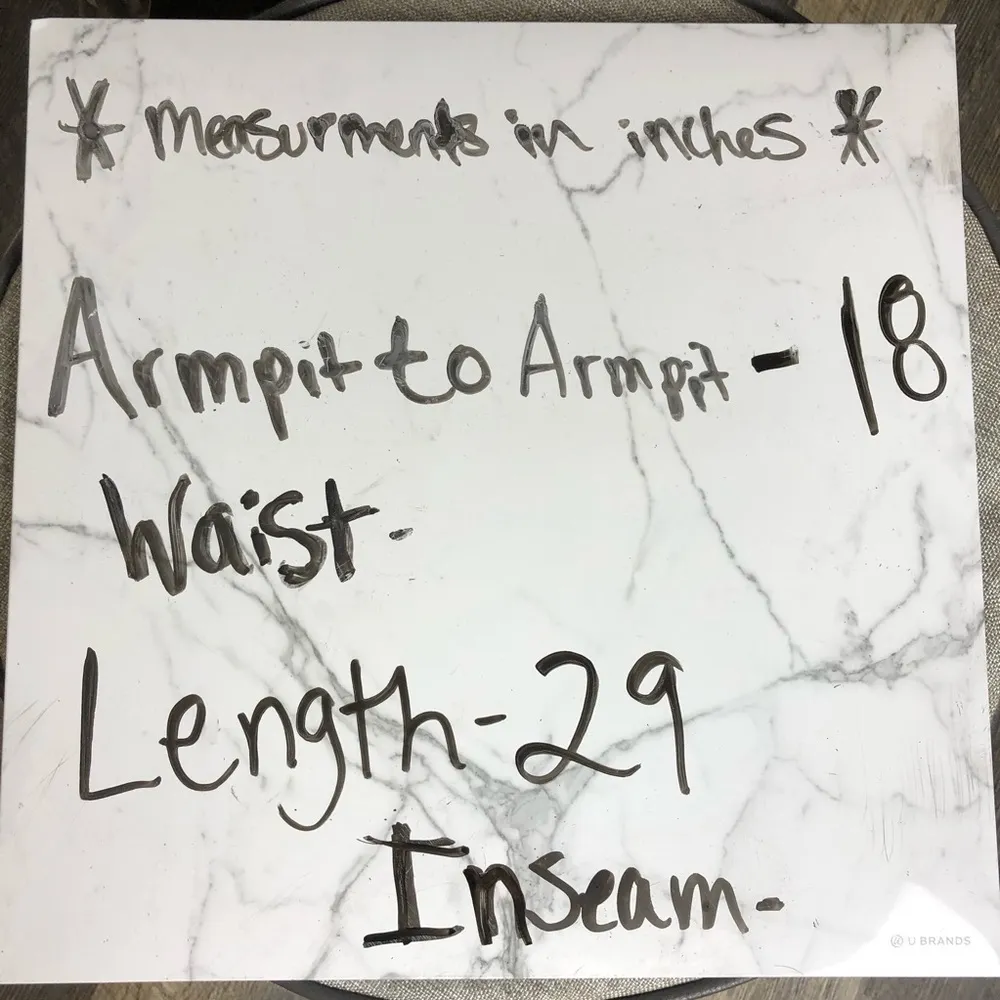 * measurments in inches *
Armpit to Armpit - 18
Waist-
Length-29
Inseam-
U BRANDS